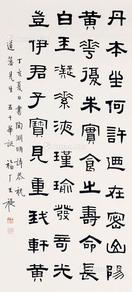 丹木生何許迺在密山陽
黃華復朱實食之壽命長
白玉凝素液瑾瑜發奇光
豈伊君子寶見重我軒黃
丁亥夏日書陶淵明詩恭祝
先生五十華誕 福厂王禔